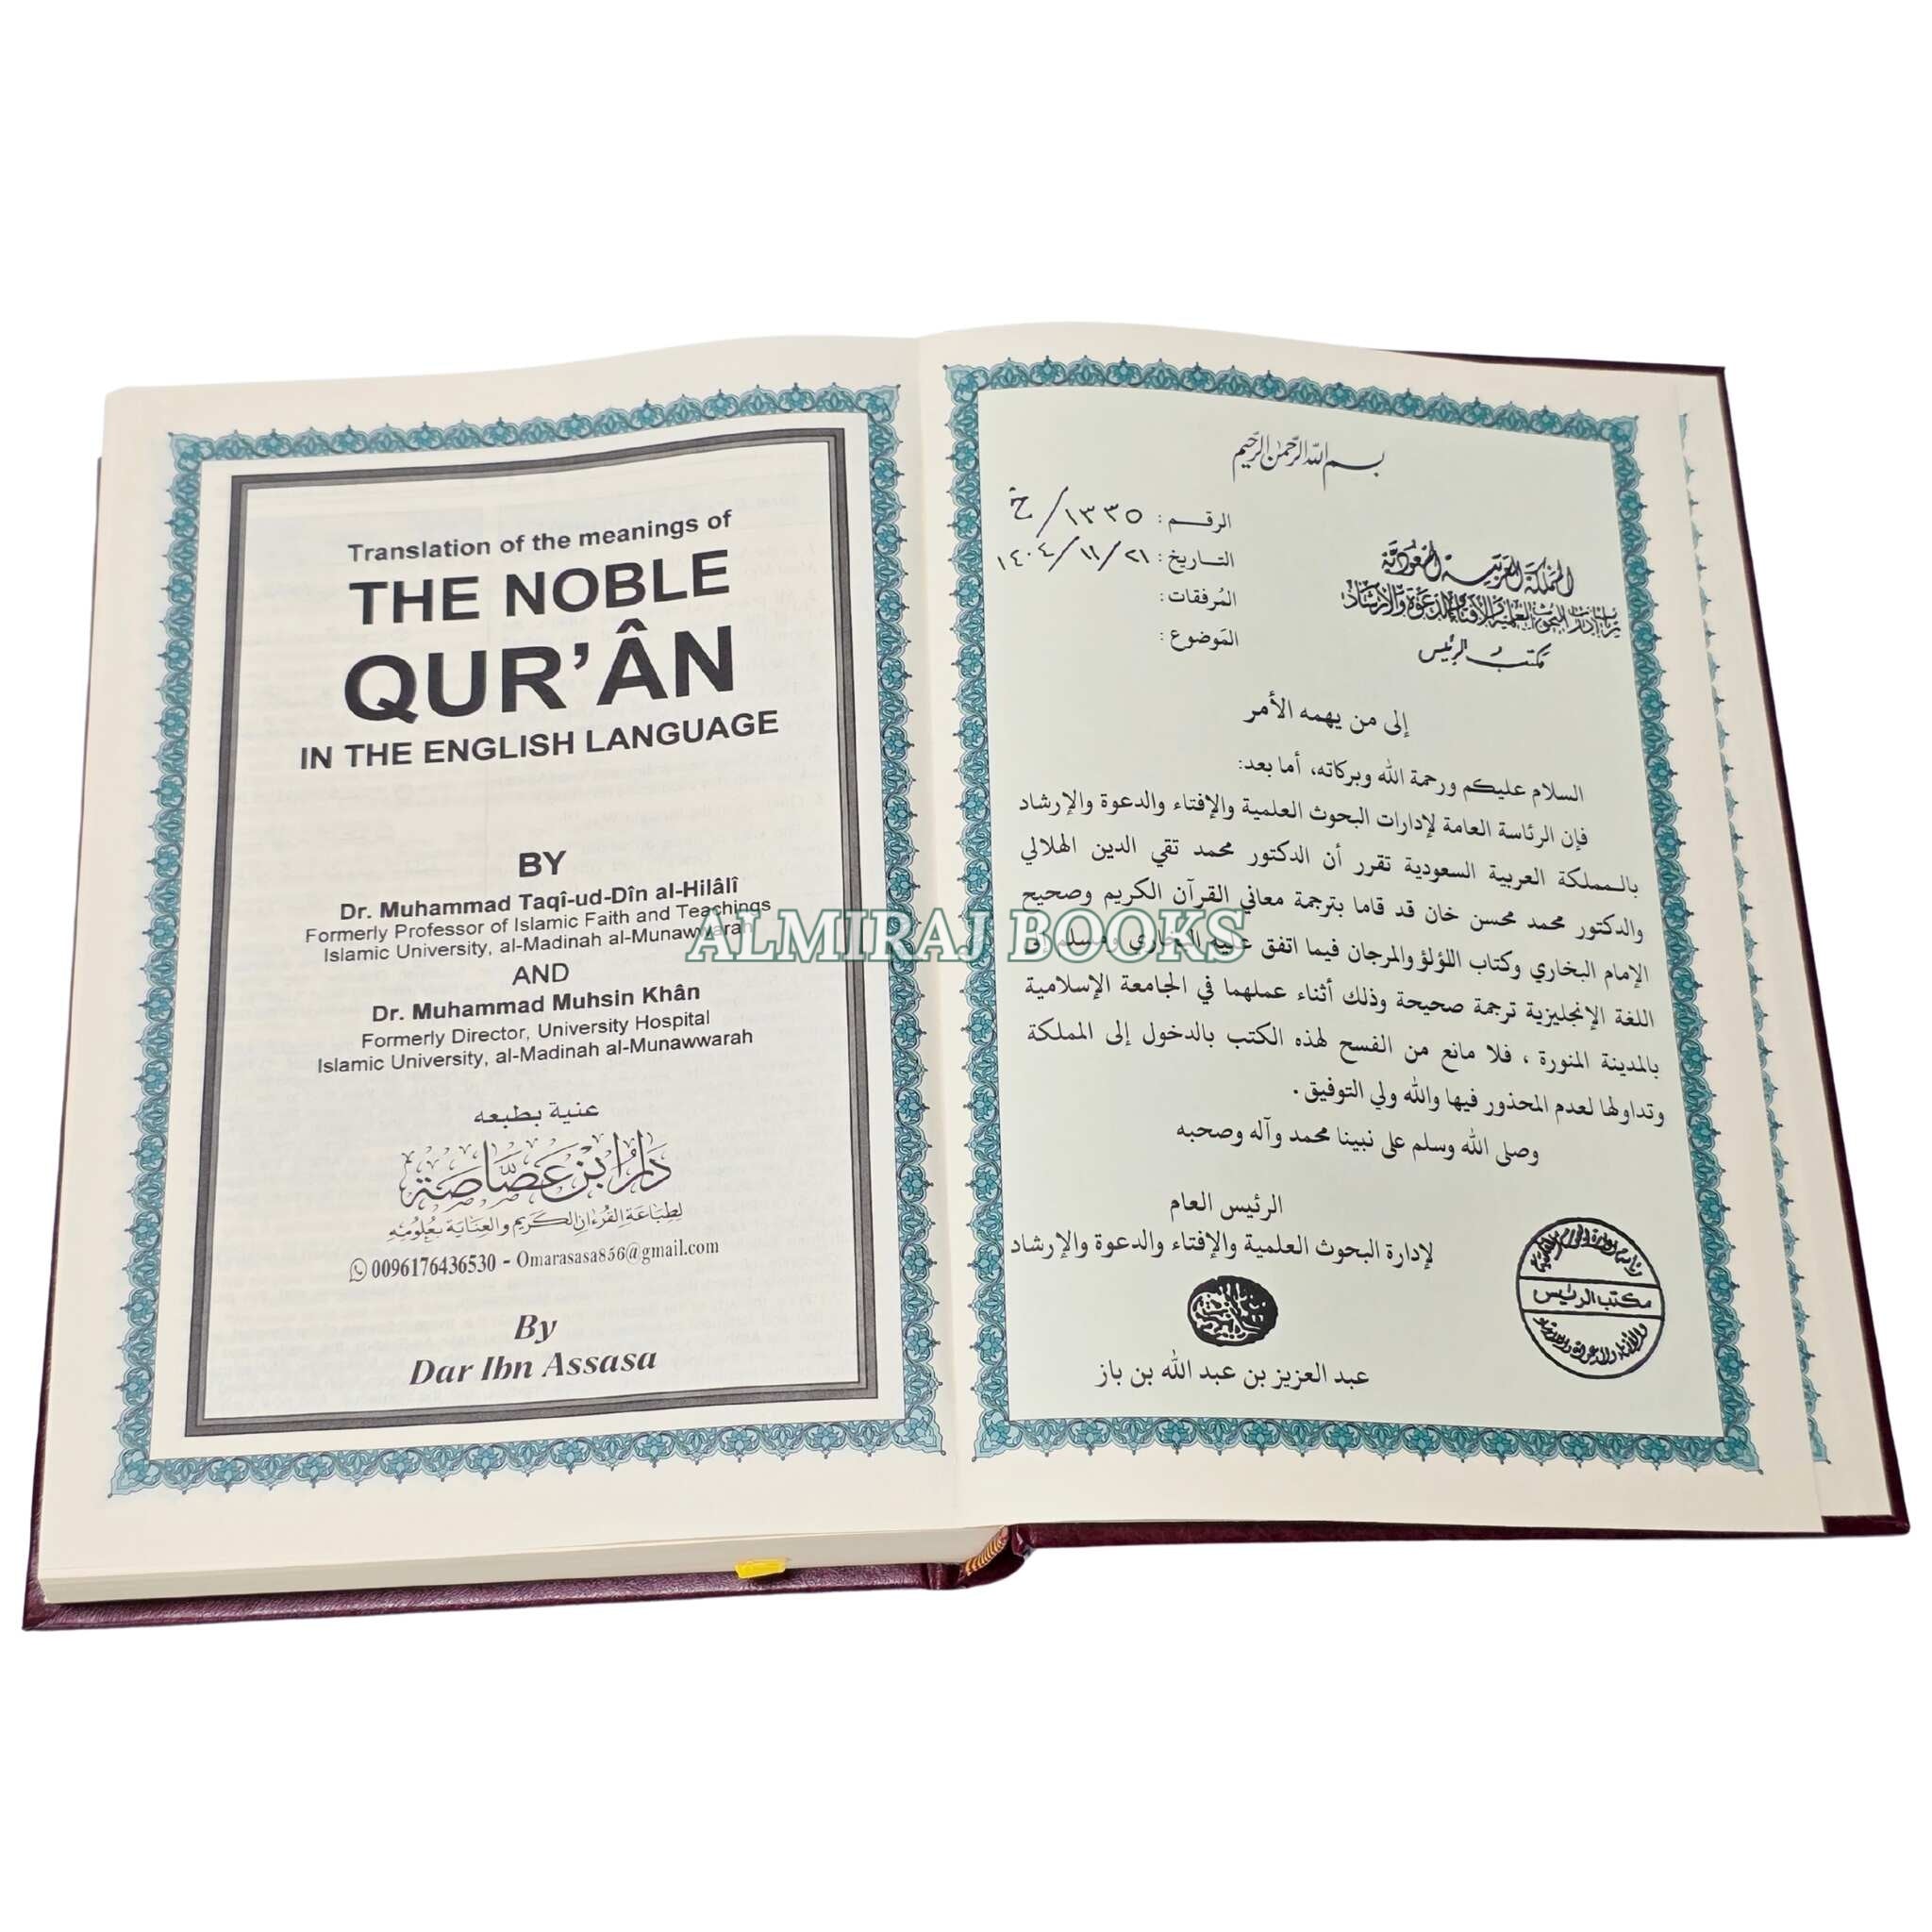 Translation of the meanings of
THE NOBLE
QUR'ÂN
IN THE ENGLISH LANGUAGE
BY
Dr. Muhammad Taqî-ud-Dîn al-Hilâlî
Formerly Professor of Islamic Faith and Teachings
Islamic University, al-Madinah al-Munawwarah
AND
Dr. Muhammad Muhsin Khân
Formerly Director, University Hospital
Islamic University, al-Madinah al-Munawwarah
عنية بطبعه
دار ابن عصاصة
لطباعة القرءان الكريم والعناية بعلومه
0096176436530 - Omarasasa856@gmail.com
By
Dar Ibn Assasa
ALMIRAJ BOOKS
بسم الله الرحمن الرحيم
الرقم: ١٣٣٥/خ
التاريخ: ١٤٠٤/١١/٢١
المرفقات:
الموضوع:
المملكة العربية السعودية
رئاسة إدارات البحوث العلمية والإفتاء والدعوة والإرشاد
مكتب الرئيس
إلى من يهمه الأمر
السلام عليكم ورحمة الله وبركاته، أما بعد:
فإن الرئاسة العامة لإدارات البحوث العلمية والإفتاء والدعوة والإرشاد
بالمملكة العربية السعودية تقرر أن الدكتور محمد تقي الدين الهلالي
والدكتور محمد محسن خان قد قاما بترجمة معاني القرآن الكريم وصحيح
الإمام البخاري وكتاب اللؤلؤ والمرجان فيما اتفق عليه البخاري ومسلم إلى
اللغة الإنجليزية ترجمة صحيحة وذلك أثناء عملهما في الجامعة الإسلامية
بالمدينة المنورة ، فلا مانع من الفسح لهذه الكتب بالدخول إلى المملكة
وتداولها لعدم المحذور فيها والله ولي التوفيق.
وصلى الله وسلم على نبينا محمد وآله وصحبه
الرئيس العام
لإدارة البحوث العلمية والإفتاء والدعوة والإرشاد
عبد العزيز بن عبد الله بن باز
مكتب الرئيس